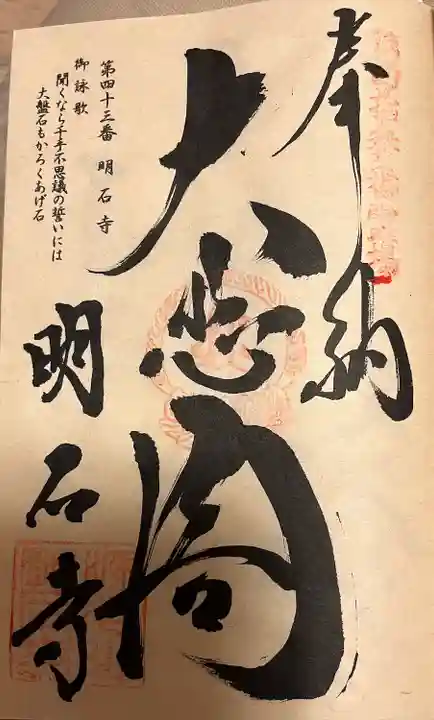 奉納
大悲閣
明石寺
第四十三番 明石寺
御詠歌
聞くなら千手不思議の誓いには
大盤石もかろくあげ石